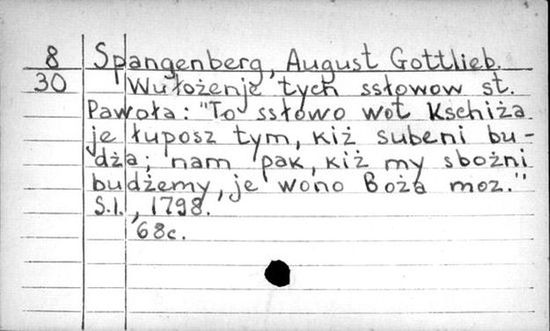 8 Spangenberg, August Gottlieb.
30 Wułożenje tych ssłowow st.
Pawoła: "To ssłowo wot Kschiża
je łuposz tym, kiż subeni bu-
dźa; nam pak, kiż my sbożni
budżemy, je wono Boża moz."
S.l., 1798.
68c.